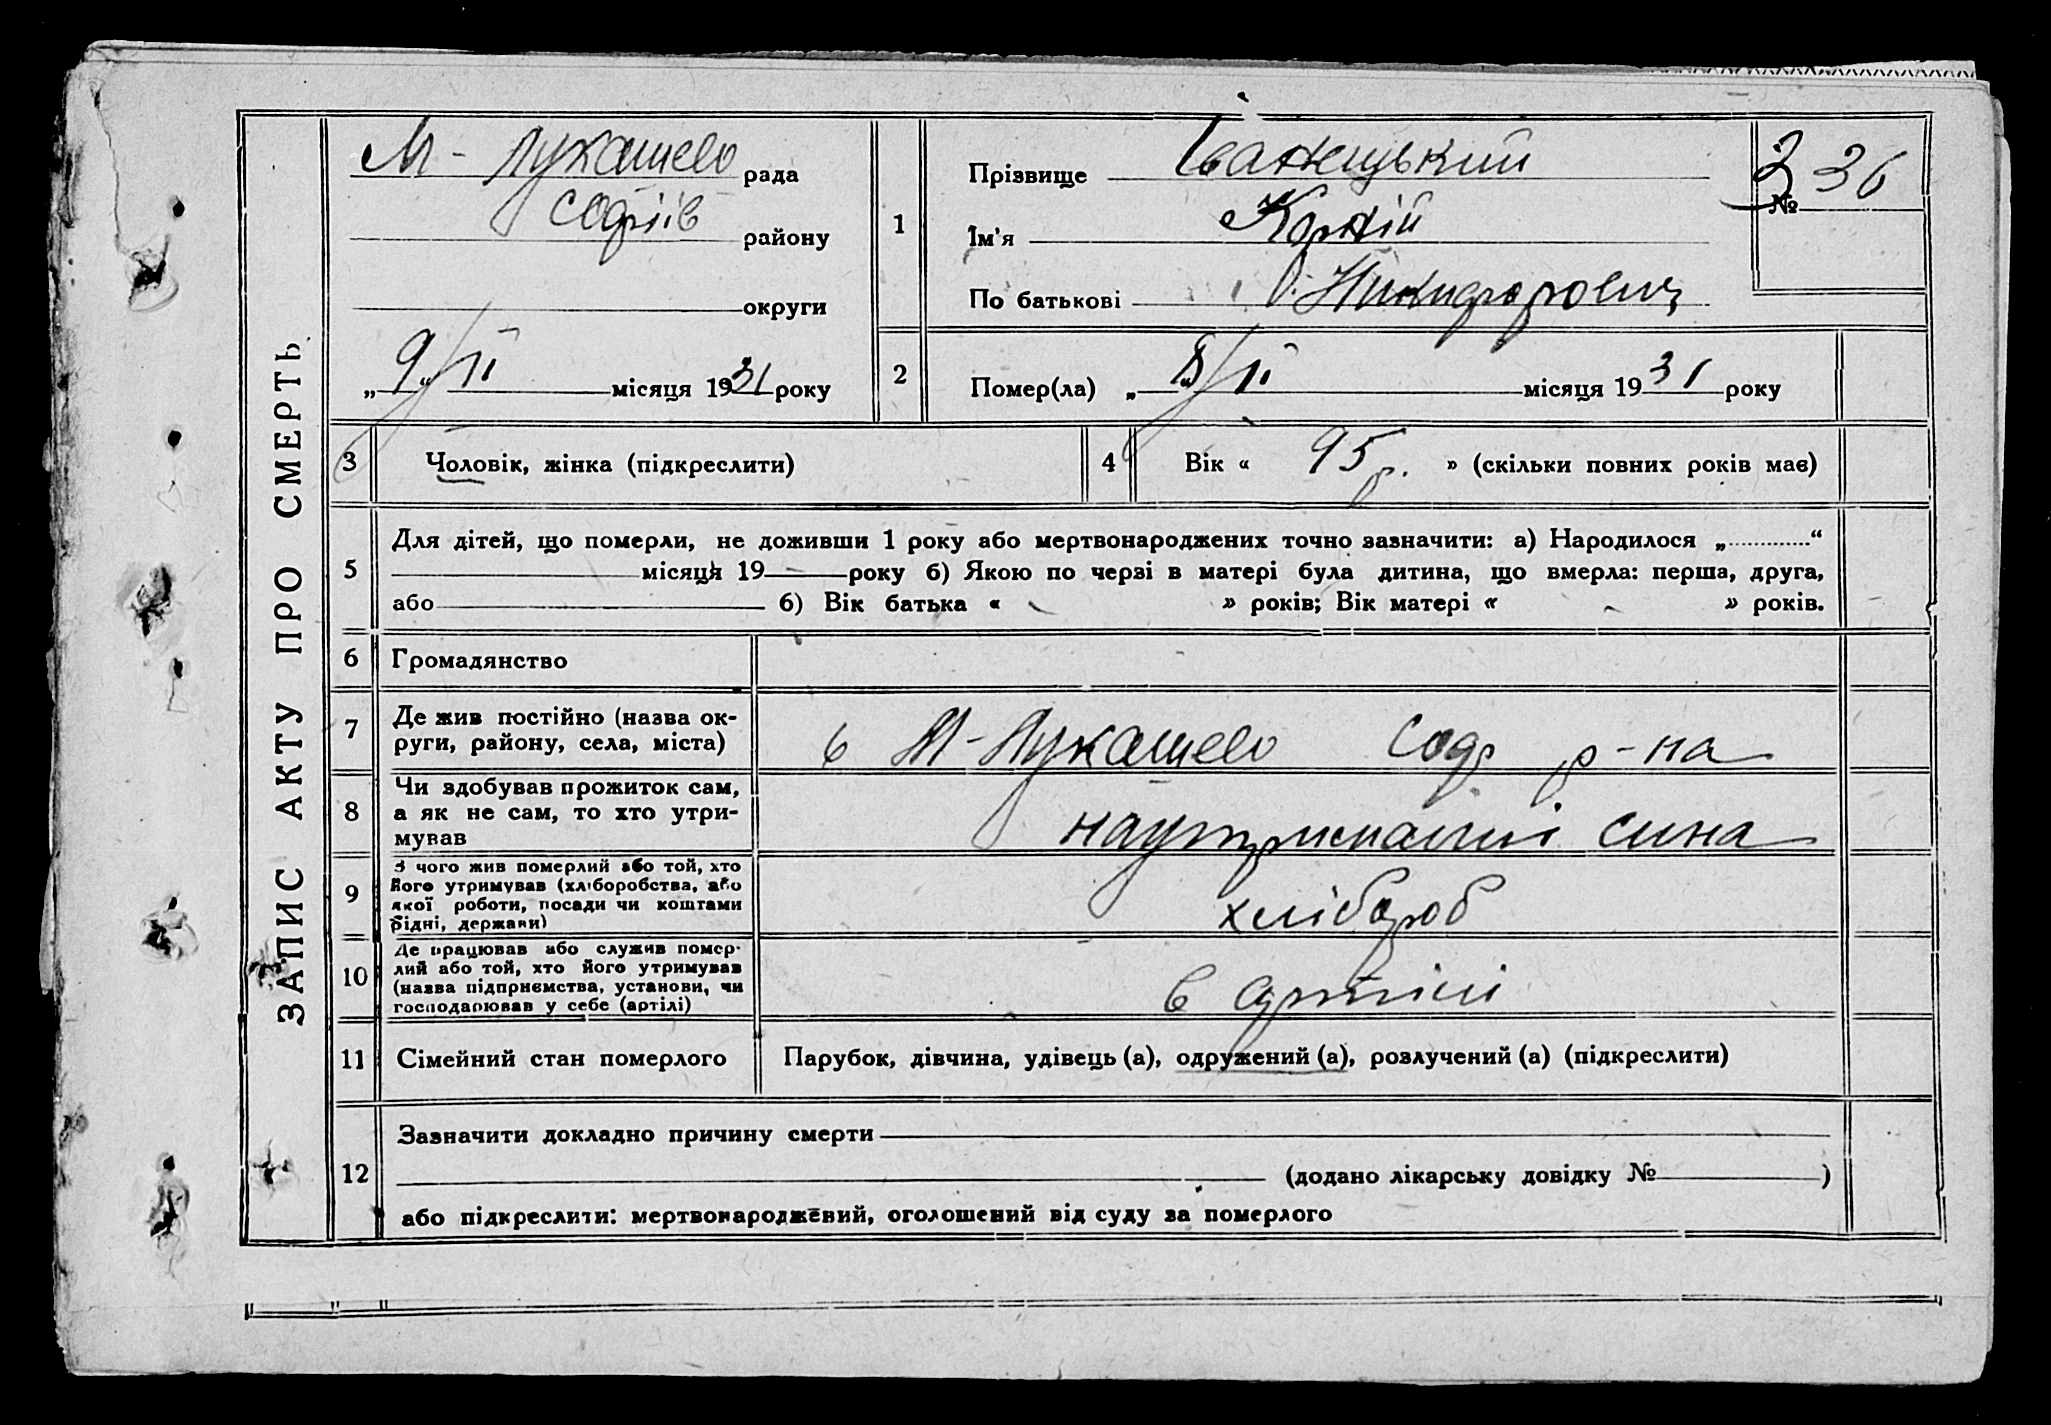 ЗАПИС АКТУ ПРО СМЕРТЬ
М-Лукашево рада
Софіїв району
округи
„9“ II місяця 1931 року
1
Прізвище Іванецький
Ім'я Корній
По батькові Никифорович
№ 36
2
Помер(ла) „8/II місяця 1931 року
3 Чоловік, жінка (підкреслити)
4 Вік « 95 р. » (скільки повних років має)
5
Для дітей, що померли, не доживши 1 року або мертвонароджених точно зазначити: а) Народилося „............“
місяця 19 року б) Якою по черзі в матері була дитина, що вмерла: перша, друга,
або б) Вік батька « » років; Вік матері « » років.
6 Громадянство
7
Де жив постійно (назва ок-
руги, району, села, міста)
в М-Лукашево Соф р-на
8
Чи здобував прожиток сам,
а як не сам, то хто утри-
мував
наутриманні сина
9
З чого жив померлий або той, хто
його утримував (хліборобства, або
якої роботи, посади чи коштами
рідні, держави)
хлібороб
10
Де працював або служив помер-
лий або той, хто його утримував
(назва підприємства, установи, чи
господарював у себе (артілі)
в артілі
11 Сімейний стан померлого
Парубок, дівчина, удівець (а), одружений (а), розлучений (а) (підкреслити)
12
Зазначити докладно причину смерти
(додано лікарську довідку № )
або підкреслити: мертвонароджений, оголошений від суду за померлого